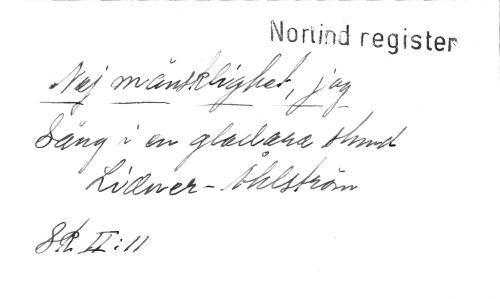 Norlind register
Nej mänsklighet, jag
Sång i en gladare stund
Lidner - Åhlström
SP. II: 11